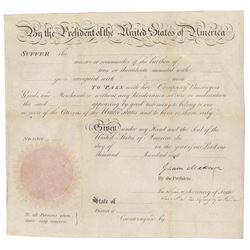 By the President of the United States of America
SUFFER the
master or commander of the burthen of
tons or thereabouts mounted with
guns navigated with men
TO PASS with her Company Passengers
Goods and Merchandize without any hinderance
the said appearing by good testimony to belong to one
or more of the Citizens of the United States and to him or them only
Given under my Hand and the Seal of the
United States of America the
day of in the year of our Lord one
thousand hundred and
James Madison
By the President
State of
District of
Countersigned by
To all Persons whom
these may concern.